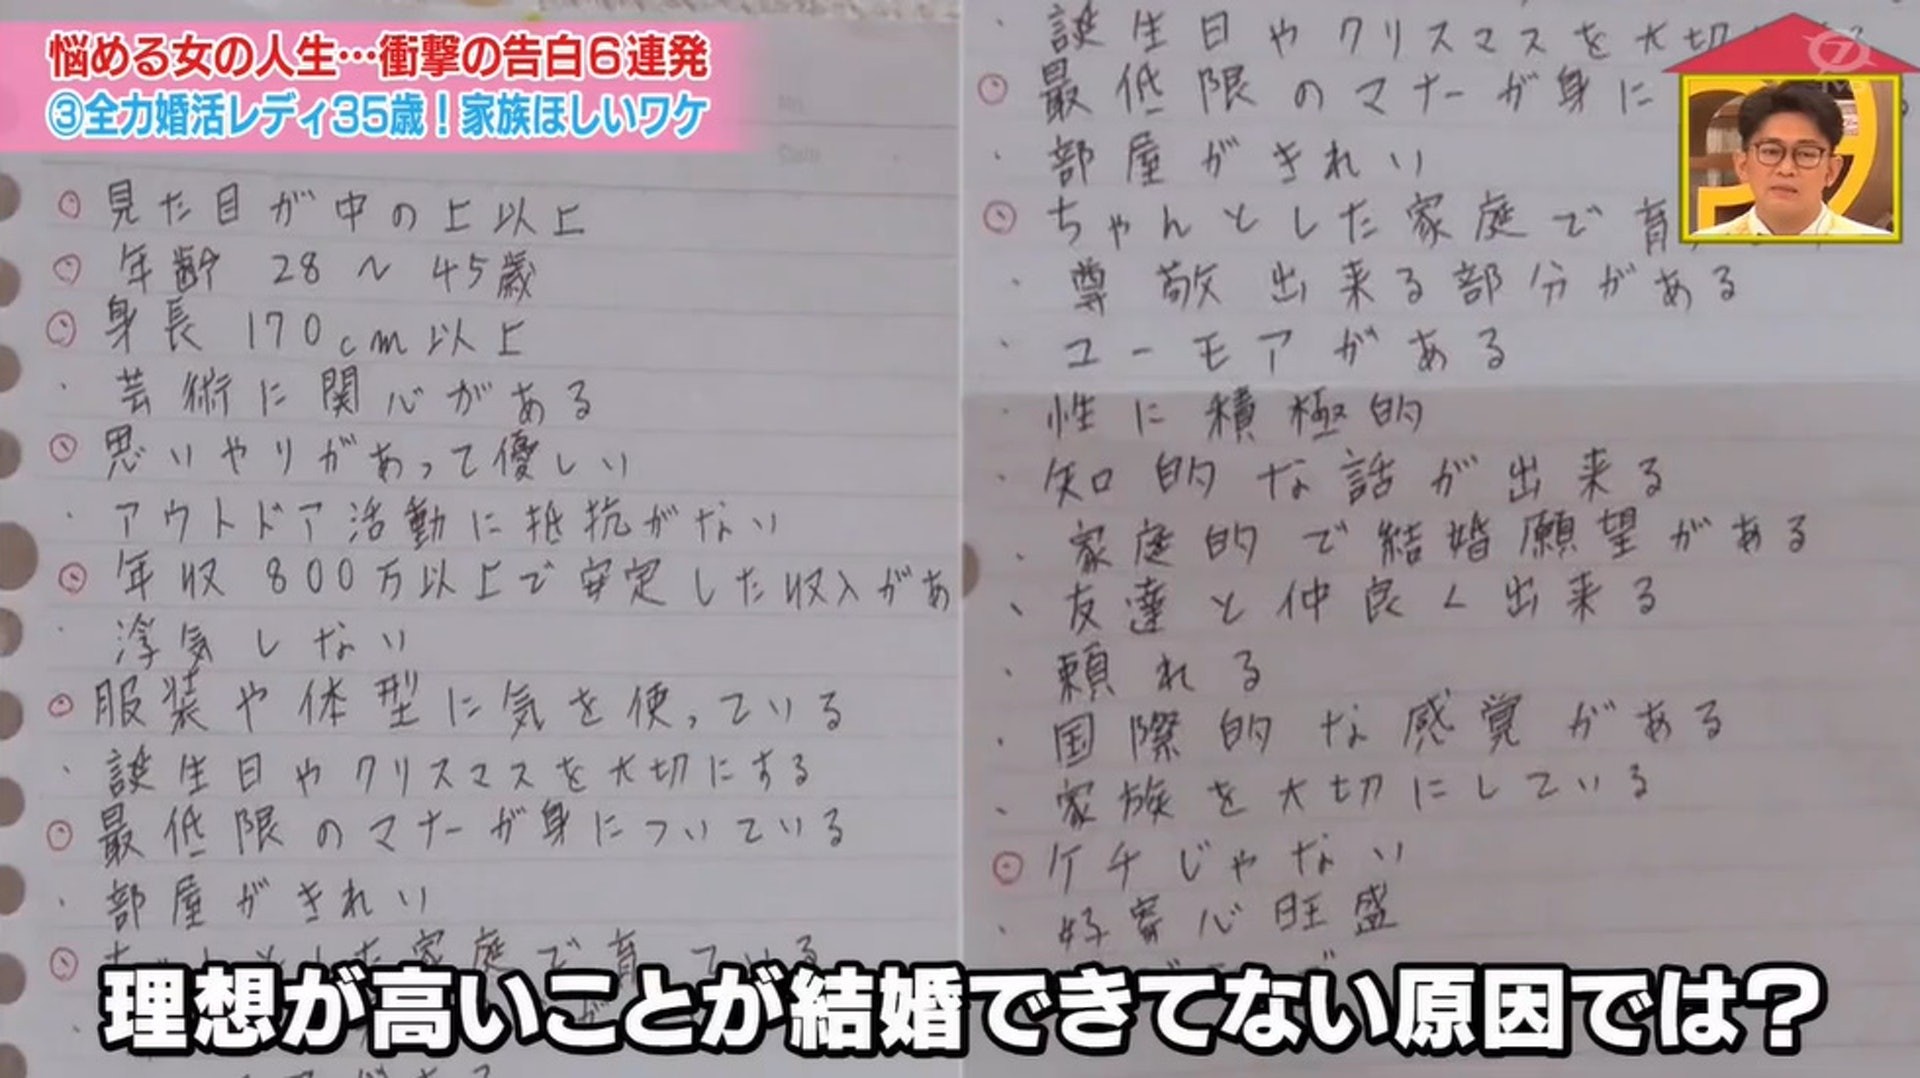 悩める女の人生…衝撃の告白6連発
③全力婚活レディ35歳！家族ほしいワケ
見た目が中の上以上
年齢 28〜45歳
身長 170cm以上
・芸術に関心がある
思いやりがあって優しい
・アウトドア活動に抵抗がない
年収 800万以上で安定した収入があ
・浮気しない
服装や体型に気を使っている
・誕生日やクリスマスを大切にする
最低限のマナーが身についている
・部屋がきれい
家庭で育っている
・誕生日やクリスマスを大切
最低限のマナーが身に
・部屋がきれい
ちゃんとした家庭で育
・尊敬出来る部分がある
・ユーモアがある
・性に積極的
・知的な話が出来る
・家庭的で結婚願望がある
・友達と仲良く出来る
・頼れる
・国際的な感覚がある
・家族を大切にしている
ケチじゃない
・好奇心旺盛
理想が高いことが結婚できてない原因では？